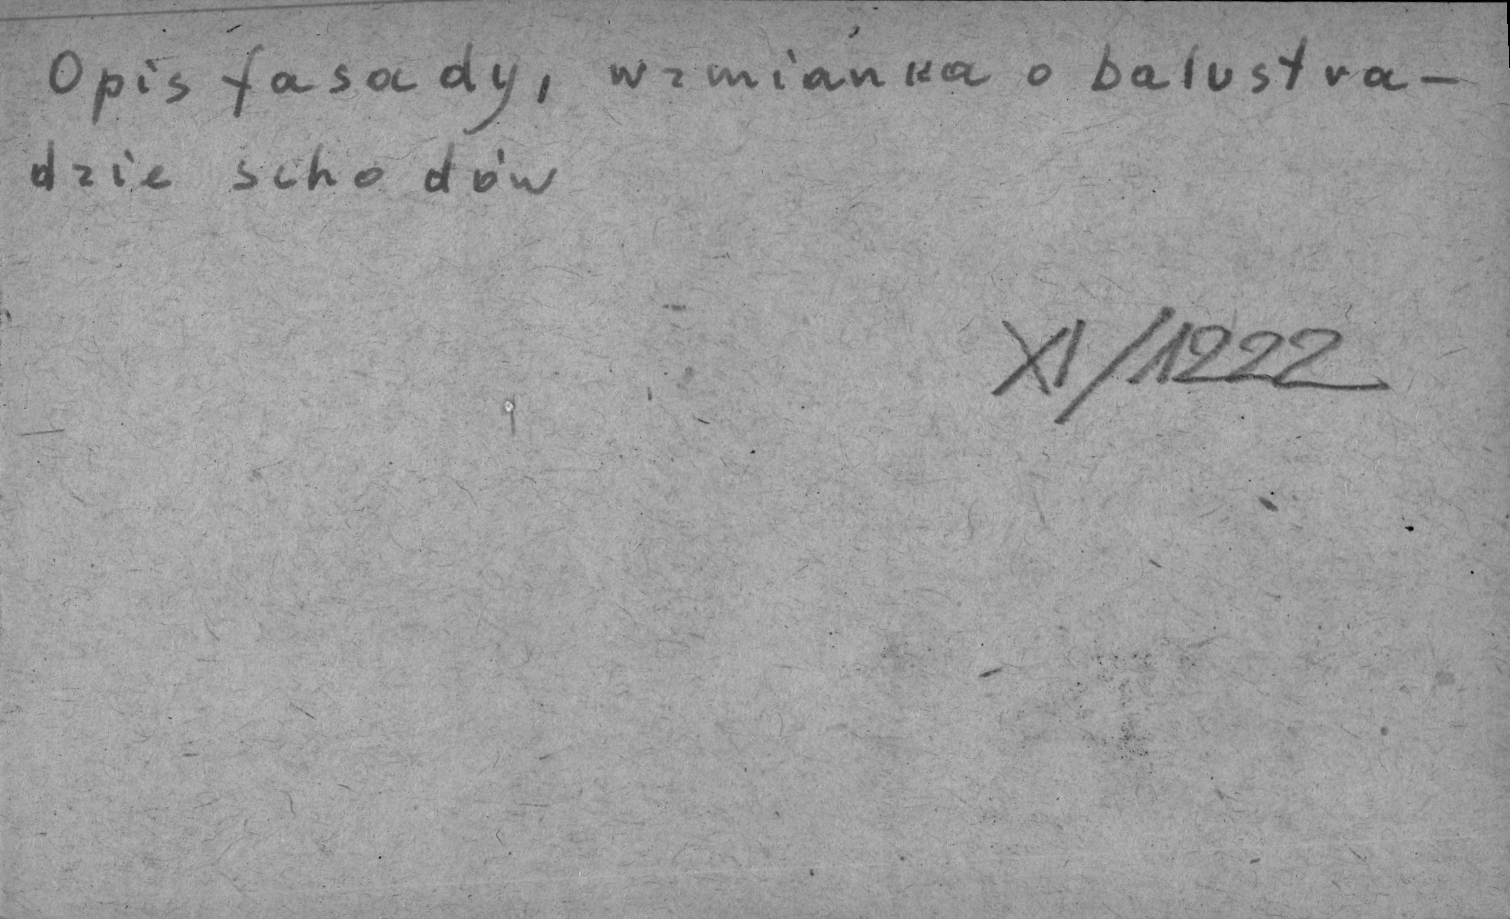 Opis fasady, wzmianka o balustra-
dzie schodów
XI/1222